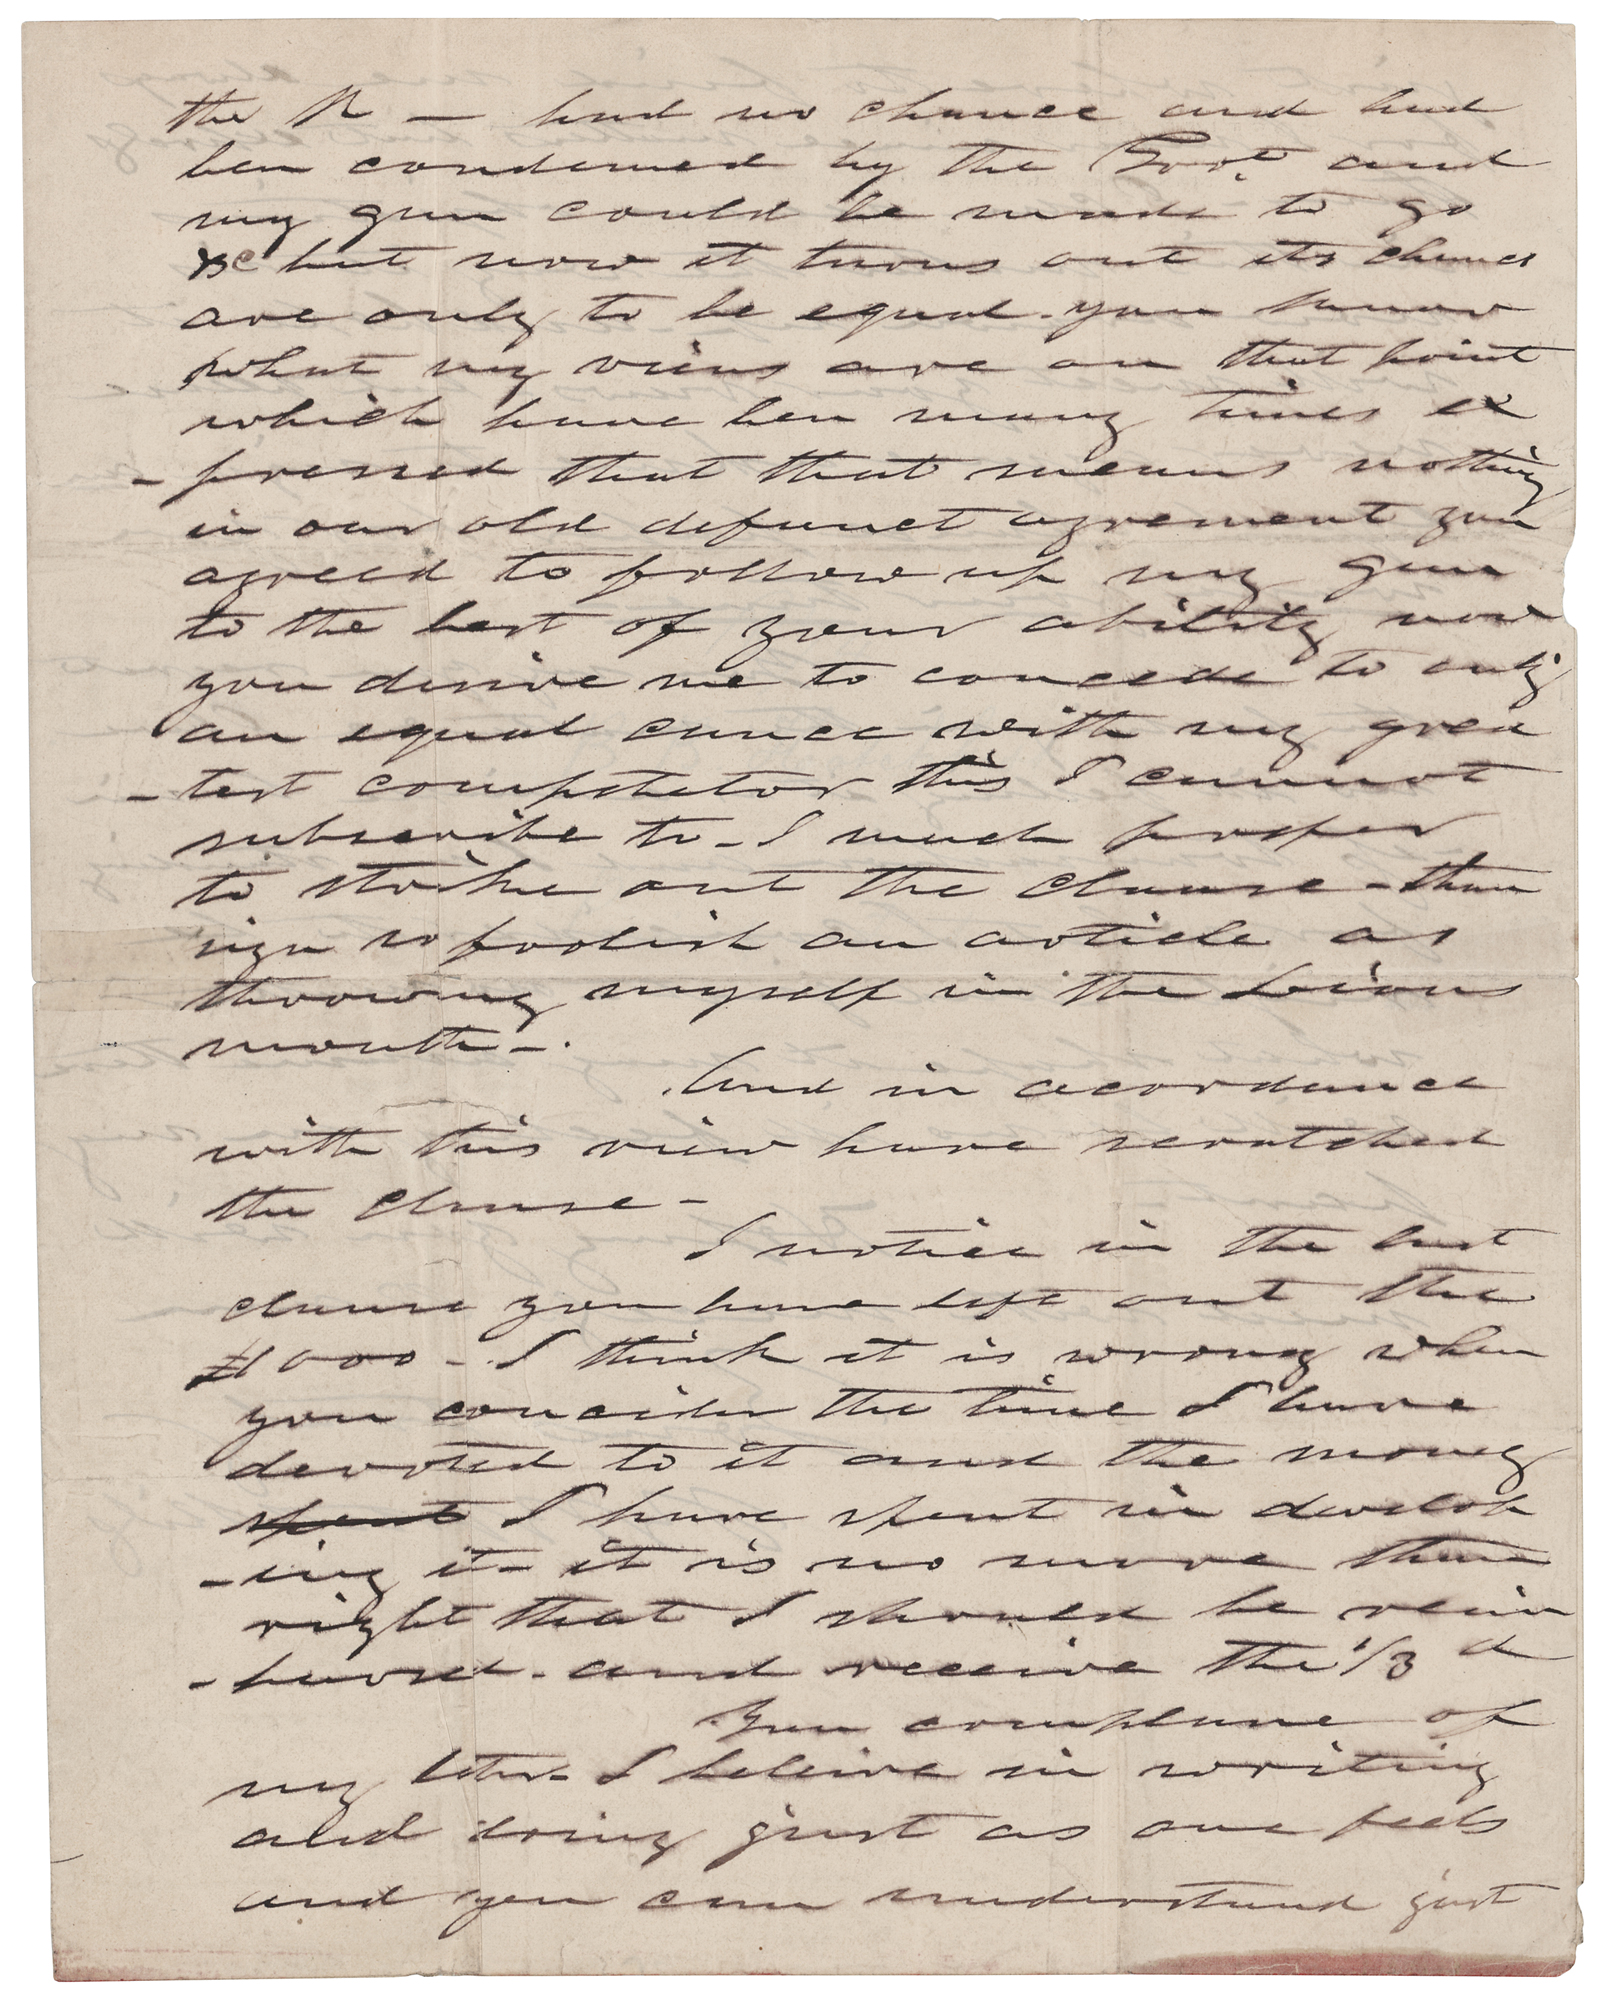 the R — had no chance and had
ben condemed by the Govt. and
my gun could be made to go
&c but now it turns out its chances
are only to be equal. you know
what my views are on that point
which have ben many times ex
-pressed that that means nothing
in our old defunct agrement you
agreed to follow up my gun
to the best of your ability now
you desire me to concede to only
an equal cance with my grea
-test compitetor this I cannot
subscribe to - I much prefer
to strike out the clause - than
sign so foolish an article as
throwing myself in the Lions
mouth -.
And in acordance
with this view have scratched
the clause -
I notice in the last
clause you have left out the
$1000 - I think it is wrong when
you concider the time I have
devoted to it and the money
spent I have spent in develop
-ing it - it is no more than
right that I should be reim
-bursd - and receive the 1/3 d
You complane of
my letter - I beleive in writing
and doing just as one feels
and you can understand just